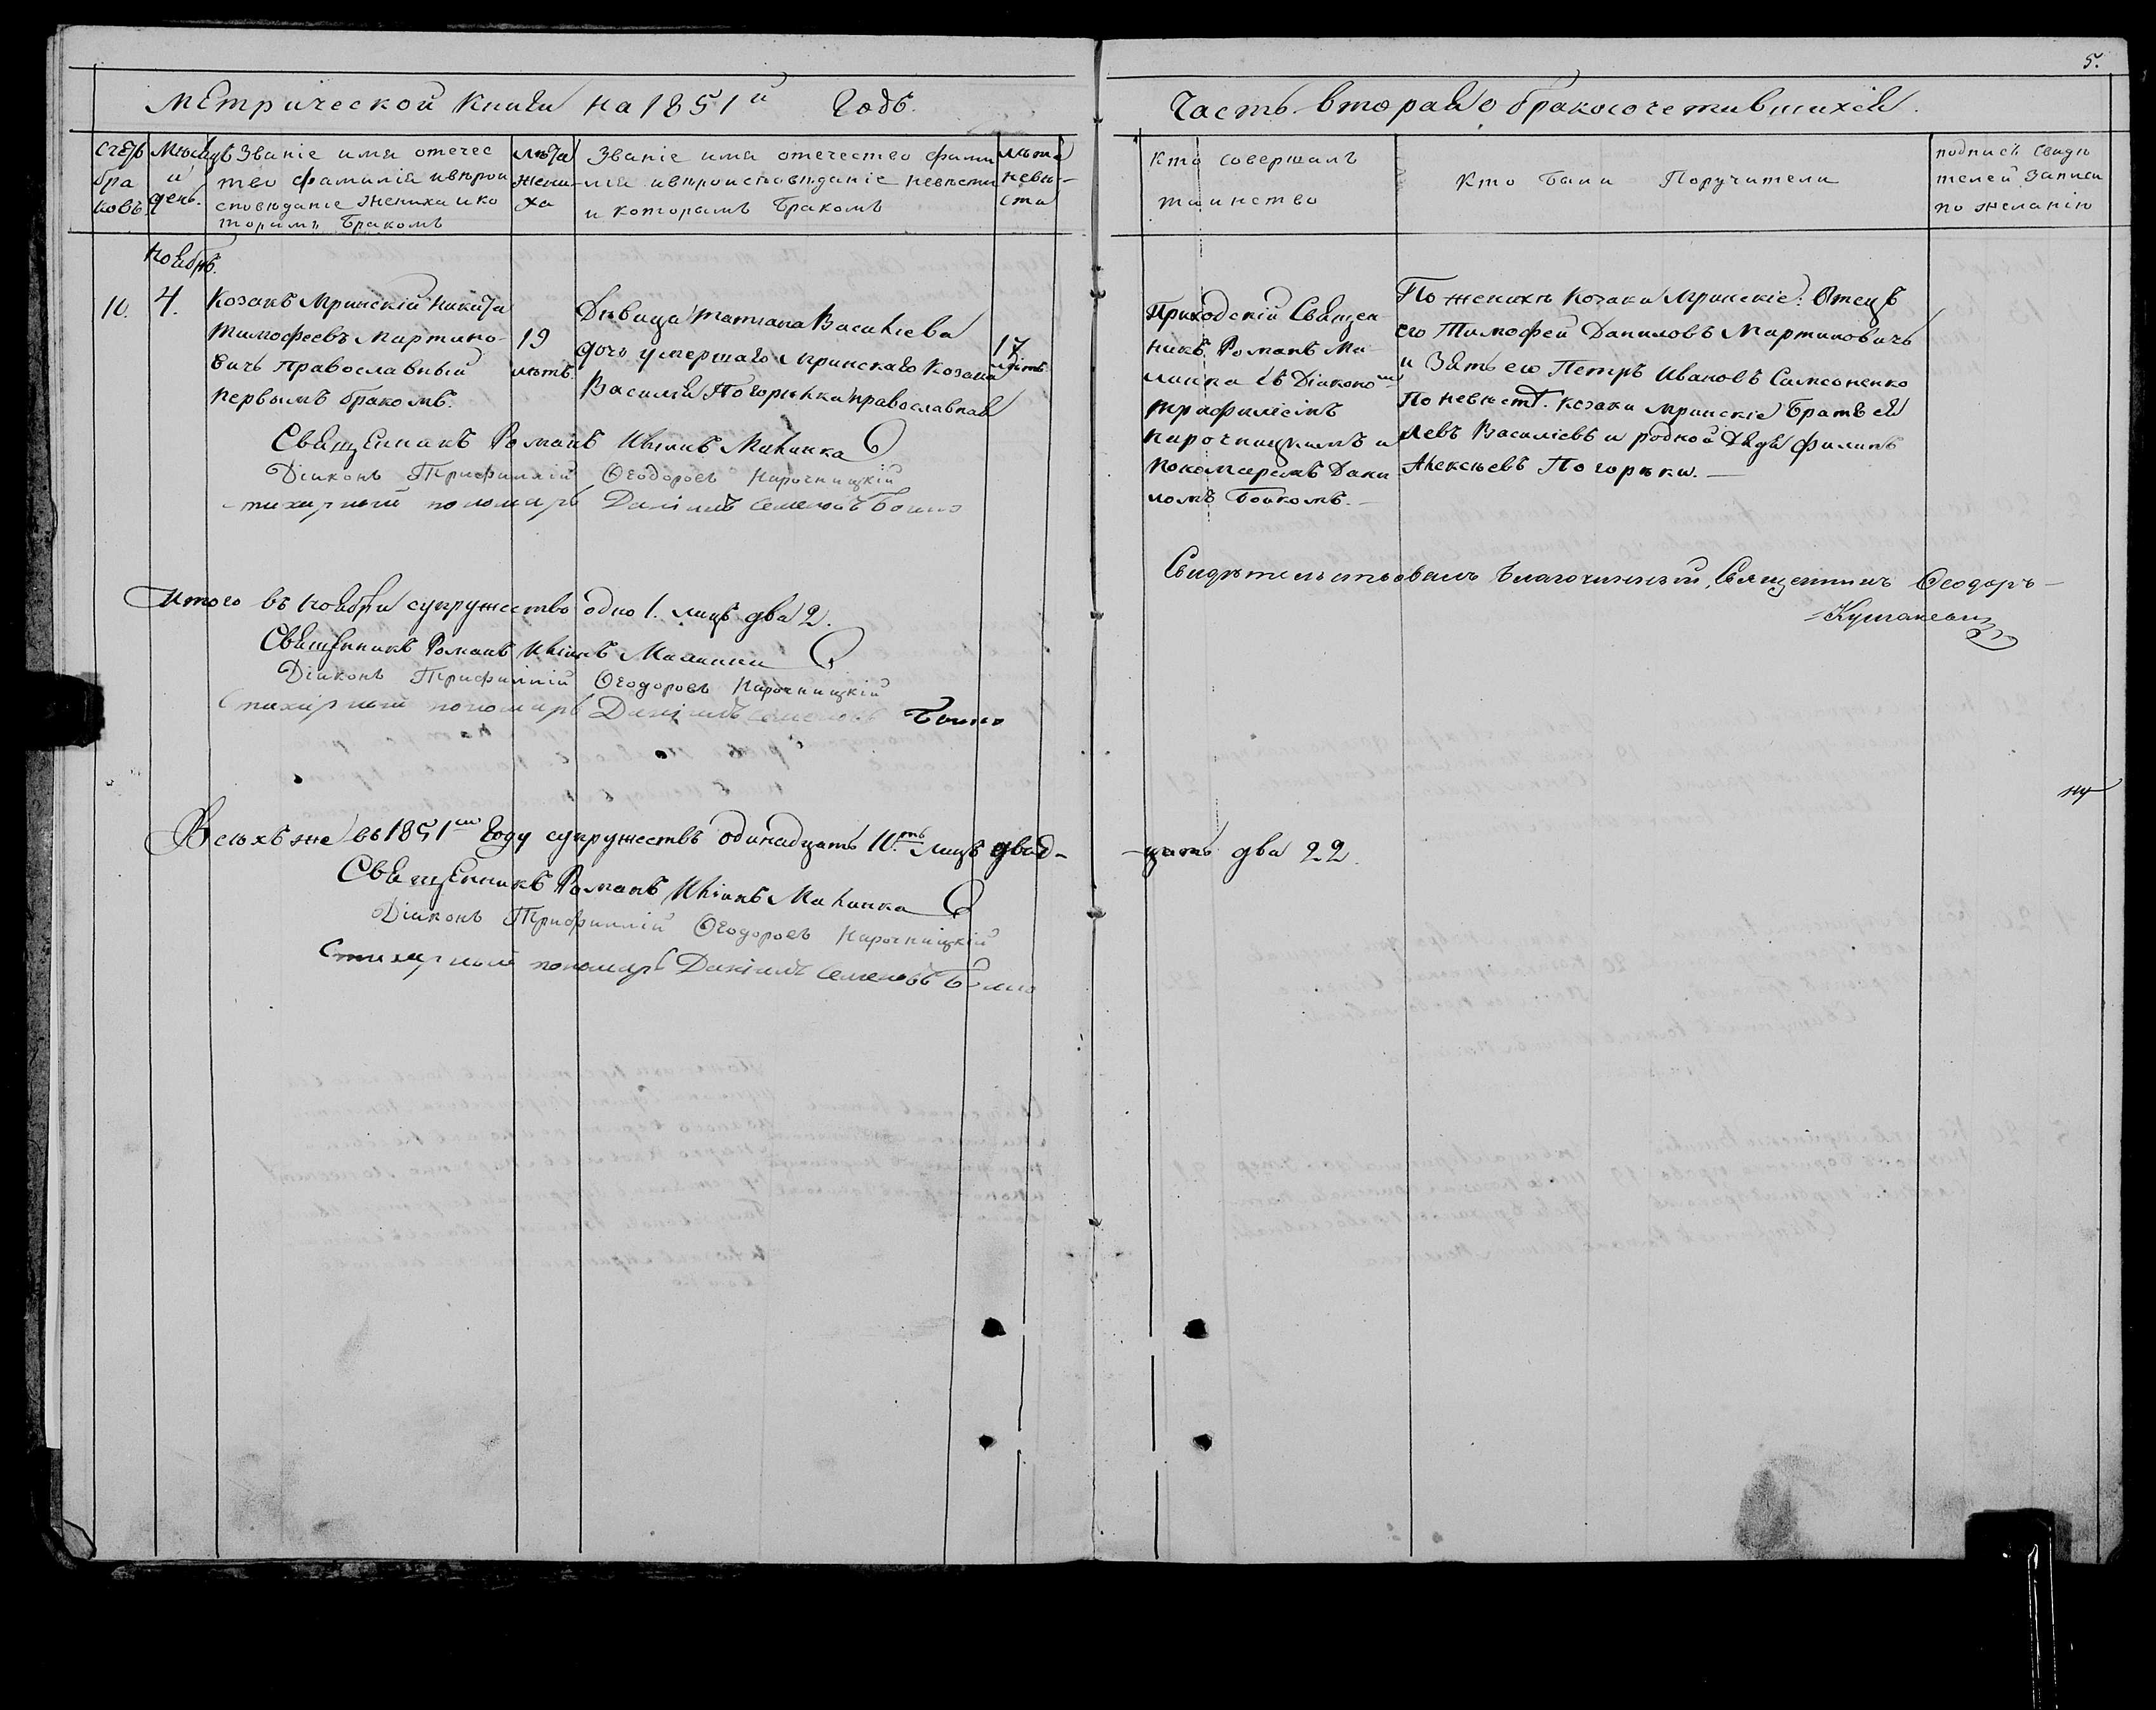 5.
Метрической Книги на 1851й Годъ.
Часть вторая о бракосочетившихся.
Счетъ браковъ
Месяцъ и день.
Званіе имя отечес
тво фамилія ивѣрои
сповѣданіе жениха ико
торимъ бракомъ
лѣта жениха
Званіе имя отечество фами
лія ивѣроисповѣданіе невѣсти
и которымъ бракомъ
лѣта невѣста
Кто совершалъ
таинство
Кто были Поручители
подписъ свидѣ
телей записи
по желанію
Ноябрь.
10. 4.
Козакъ Мринскій Никита
Тимофеевъ Мартино-
вичъ православный
первымъ бракомъ.
19
лѣтъ.
Дѣвица Татіана Василіева
дочь умершаго Мринскаго Козака
Василія Погорѣлки православная
17
лѣтъ
Приходскій Священ
никъ Романъ Ма-
линка съ Діакономъ
Трифиліемъ
Нарочницкимъ и
пономаремъ Дани
ломъ Бойкомъ.
По женихѣ Козаки Мринскіе: Отецъ
его Тимофей Даниловъ Мартиновичъ
и Зять его Петръ Ивановъ Самсоненко
По невѣстѣ. козаки мринскіе Братъ ея
Левъ Василіевъ и родной Дядя Филипъ
Алексѣевъ Погорѣки.
Священникъ Романъ Иліинъ Малинка
Діаконъ Трифиллій Ѳеодоровъ Нарочницкій
стихарный пономарь Даніилъ Семеновъ Бойко
Итого въ Ноябрѣ супружество одно 1. лицъ два 2.
Священникъ Романъ Иліинъ Малинка
Діаконъ Трифиллій Ѳеодоровъ Нарочницкій
Стихарный пономарь Даніилъ Семеновъ Бойко
Свидѣтельствовалъ Благочинный, Священникъ Ѳеодоръ
Всѣхъ же въ 1851мъ Году супружествъ одинадцать 11.ть Лицъ двад-
-цать два 22.
Священникъ Романъ Иліинъ Малинка
Діаконъ Трифиллій Ѳеодоровъ Нарочницкій
Стихарный пономарь Даніилъ Семеновъ Бойко